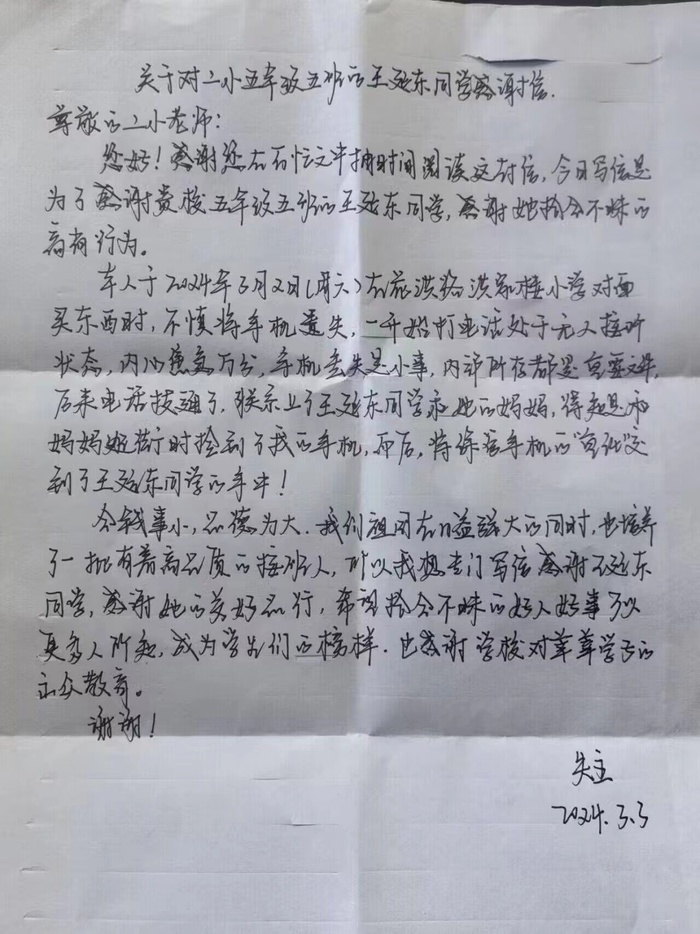 关于对二小五年级五班的王延东同学感谢信.
尊敬的二小老师:
您好!感谢您在百忙之中抽时间阅读这封信,今日写信是
为了感谢贵校五年级五班的王延东同学,感谢她拾金不昧的
高尚行为。
本人于2024年3月2日(周六)在 洪路洪家楼小学对面
买东西时,不慎将手机遗失,一开始打电话处于无人接听
状态,内心焦急万分,手机丢失是小事,内部所存都是重要文件,
后来电话接通了.联系上了王延东同学和她的妈妈,得知是和
妈妈逛街时捡到了我的手机,而后,将保管手机的“重任”交
到了王延东同学的手中!
金钱事小,品德为大.我们祖国在日益强大的同时,也培养
了一批有着高品质的接班人,所以我想专门写信感谢王延东
同学,感谢她的美好品行,希望拾金不昧的好人好事可以
更多人所知,成为学生们的榜样.也感谢学校对莘莘学子的
教育。
谢谢!
失主
2024.3.3